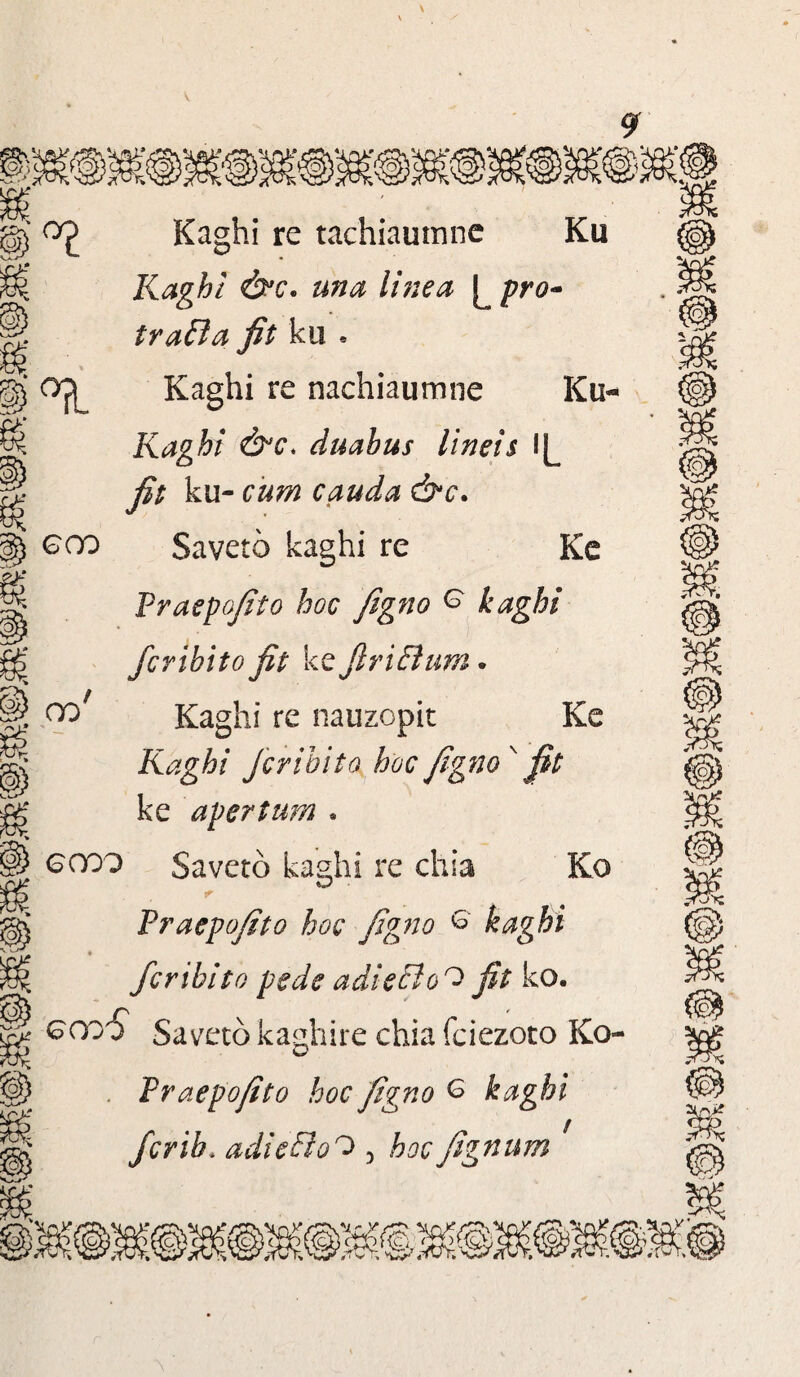 9
ကု Kaghi re tachiaumne Ku
Kaghi &c. una linea ⌊ pro-
tracta ſit ku .
ကူ Kaghi re nachiaumne Ku-
Kaghi &c. duabus lineis ၊⌊
fit ku- cum cauda &c.
ကေ Savetò kaghi re Ke
Praepoſito hoc ſigno ေ kaghi
ſcribito fit ke ſtrictum .
က′ Kaghi re nauzopit Ke
Kaghi ſcribito hoc ſigno ` fit
ke apertum .
ကော Savetò kaghi re chia Ko
Praepoſito hoc ſigno ေ kaghi
ſcribito pede adiecto ာ fit ko.
ကော် Savetò kaghire chia ſciezoto Ko-
Praepoſito hoc ſigno ေ kaghi
ſcrib. adiecto ာ , hoc ſignum ′